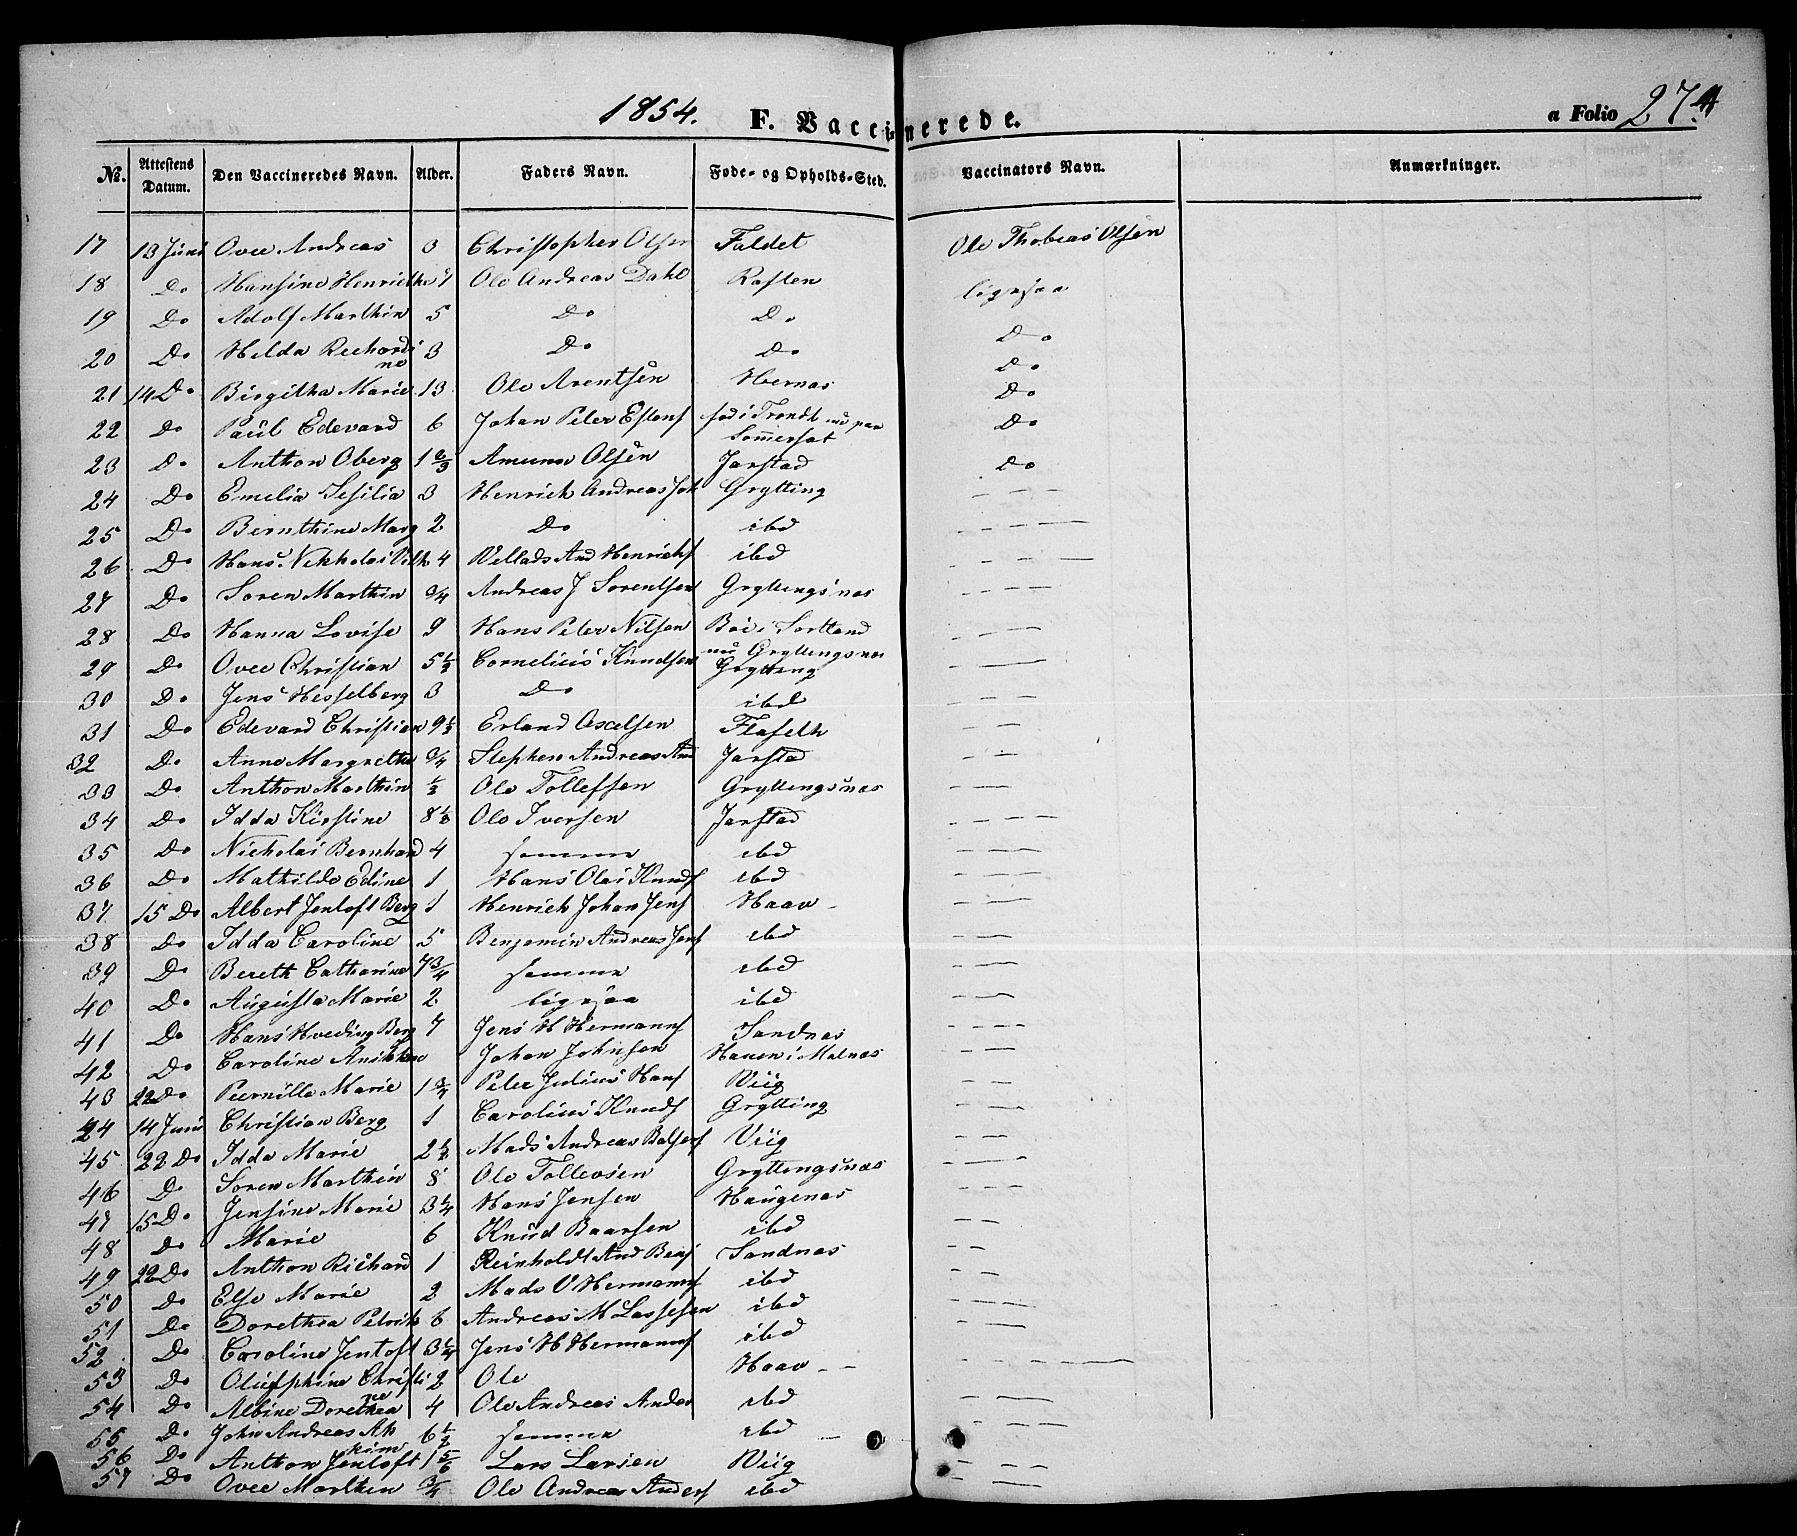 1854. F. Vaccinerede. a Folio 274
No. Attestens Datum. Den Vaccineredes Navn. Alder. Faders Navn. Føde- og Opholds-Sted. Vaccinators Navn. Anmærkninger.
17 13 Juni Ovee Andreas 3 Christopher Olsen Faldet Ole Thobias Olsen
18 Do Hansine Henrikke 7 Ole Andreas Dahl Raften ligesaa
19 Do Adolf Marthin 5 Do Do Do
20 Do Helda Richardine 3 Do Do Do
21 14 Do Birgitha Marie 13 Ole Arentsen Hernas Do
22 Do Paul Edevard 6 Johan Peter Estens fød i Trondt nu paa Sommersæt Do
23 Do Anthon Oberg 1 2/3 Amund Olsen Jarstad Do
24 Do Emelia Sesilia 3 Henrich Andreas Joh Grytting — — —
25 Do Bernthine Marg 2 Do ibd — — —
26 Do Hans Nikholai Vilh 4 Vellads And Henrichs ibd — — —
27 Do Søren Marthin 3/4 Andreas J Sørentsen Gryttingsnæs — — —
28 Do Hanna Lovise 9 Hans Peter Nilsen Bøi i Sortland nu Gryttengsnæs — — —
29 Do Ovee Christian 5 1/2 Cornelius Knudsen Grytteng — — —
30 Do Jens Hesselberg 3 Do ibd — — —
31 Do Edevard Christian 9 1/2 Erland Axelsen Flaseth — — —
32 Do Anne Margretha 3/4 Stephen Andreas And Jarstad — — —
33 Do Anthon Marthin 1/2 Ole Tollefsen Gryttengsnæs — — —
34 Do Idda Kirstine 8 1/2 Ole Iversen Jarstad — — —
35 Do Nicholai Bernhard 4 samme ibd — — —
36 Do Mathilde Edine 1 Hans Olai Knuds ibd — — —
37 15 Do Albert Jentoft Berg 1 Henrich Johan Jens Haav — — —
38 Do Idda Caroline 5 Benjamin Andreas Jens ibd — — —
39 Do Bereth Catharine 7 3/4 samme ibd — — —
40 Do Augusta Marie 2 ligesaa ibd — — —
41 Do Hans Hveding Berg 7 Jens H Hermanns Sandnæs — — —
42 Do Caroline Anikken Johan Johnsen Hauen i Malnæs — — —
43 22 Do Pernille Marie 1 3/4 Peter Julius Hans Viig
44 14 Juni Christian Berg 1 Carolius Knuds Grytting — — —
45 22 Do Idda Marie 2 1/2 Mads Andreas Balsers Viig — — —
46 Do Søren Marthin 8 Ole Tollevsen Gryttengsnæs — — —
47 15 Do Jensine Marie 3 1/4 Hans Jensen Haugenæs — — —
48 Do Marie 6 Knud Baarsen ibd — —
49 22 Do Anthon Richard 1 Reinholdt And Bens Sandnæs — — —
50 Do Else Marie 2 Mads V Hermanns ibd — —
51 Do Dorethea Petrik 6 Andreas M Lassesen ibd — — —
52 Do Caroline Jentoft 3 1/4 Jens H Hermanns ibd — — —
53 Do Olufphine Christine 2 Ole Haav — — —
54 Do Albine Dorethea 4 Ole Andreas Anders ibd — — —
55 Do John Andreas Akkim 6 1/2 samme ibd — — —
56 Do Anthon Jentoft 1 5/6 Lars Larsen Viig — — —
57 Do Ovee Marthin 3/4 Ole Andreas Anders ibd — — —